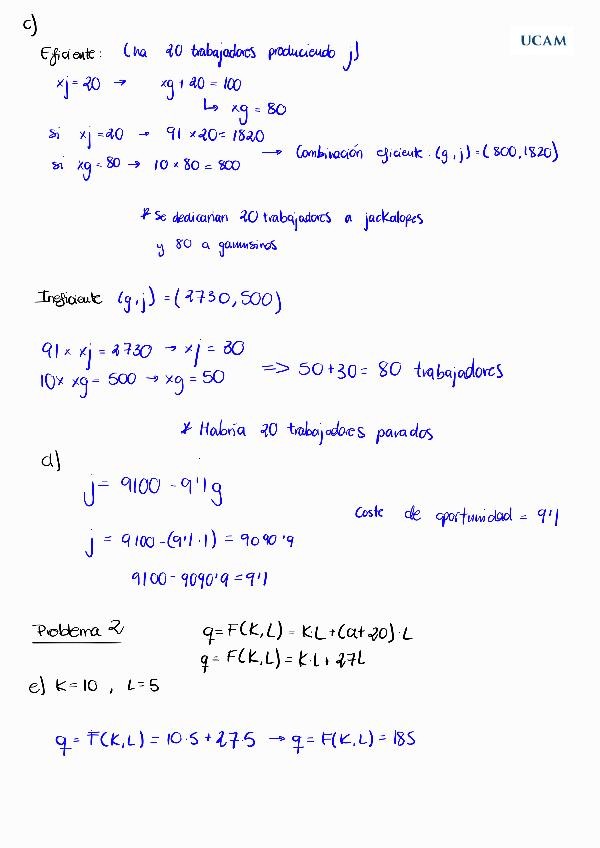 c)
UCAM
Eficiente: (ha 20 trabajadores produciendo j)
xj = 20 → xg + 20 = 100
↳ xg = 80
si xj = 20 → 91 × 20 = 1820
si xg = 80 → 10 × 80 = 800
→ Combinación eficiente. (g, j) = (800, 1820)
* Se dedicarían 20 trabajadores a jackalopes
y 80 a gamusinos
Ineficiente (g, j) = (2730, 500)
91 × xj = 2730 → xj = 30
10 × xg = 500 → xg = 50
=> 50 + 30 = 80 trabajadores
* Habría 20 trabajadores parados
d)
j = 9100 - 9'1g
Coste de oportunidad = 9'1
j = 9100 - (9'1 · 1) = 9090'9
9100 - 9090'9 = 9'1
Problema 2
q = F(K, L) = K·L + (a + 20)·L
q = F(K, L) = K·L + 27L
e) K = 10 , L = 5
q = F(K, L) = 10·5 + 27·5 → q = F(K, L) = 185